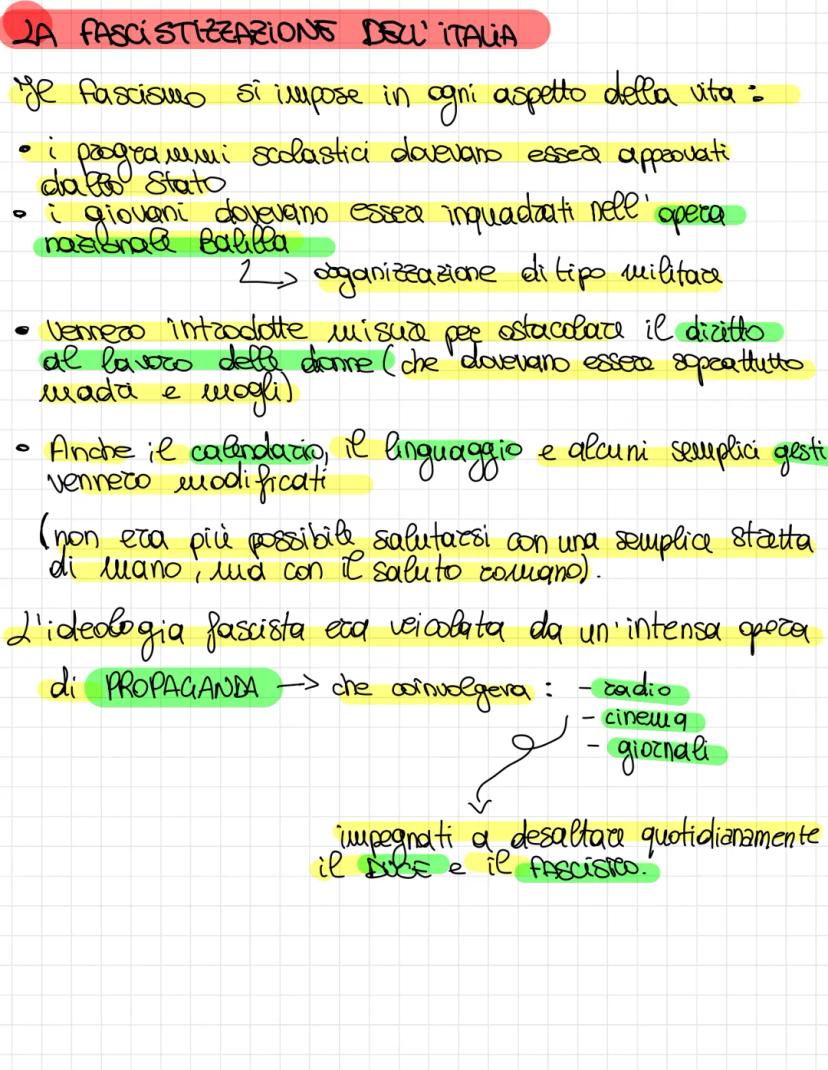 LA FASCISTIZZAZIONE DELL'ITALIA
Il fascismo si impose in ogni aspetto della vita :
• i programmi scolastici dovevano essere approvati
dallo Stato
• i giovani dovevano essere inquadrati nell' opera
nazionale Balilla
→ organizzazione di tipo militare
• Vennero introdotte misure per ostacolare il diritto
al lavoro delle donne (che dovevano essere soprattutto
madri e mogli)
• Anche il calendario, il linguaggio e alcuni semplici gesti
vennero modificati
(non era più possibile salutarsi con una semplice stretta
di mano, ma con il saluto romano).
L'ideologia fascista era veicolata da un'intensa opera
di PROPAGANDA → che coinvolgeva : - radio
- cinema
- giornali
impegnati a desaltare quotidianamente
il DUCE e il FASCISMO.